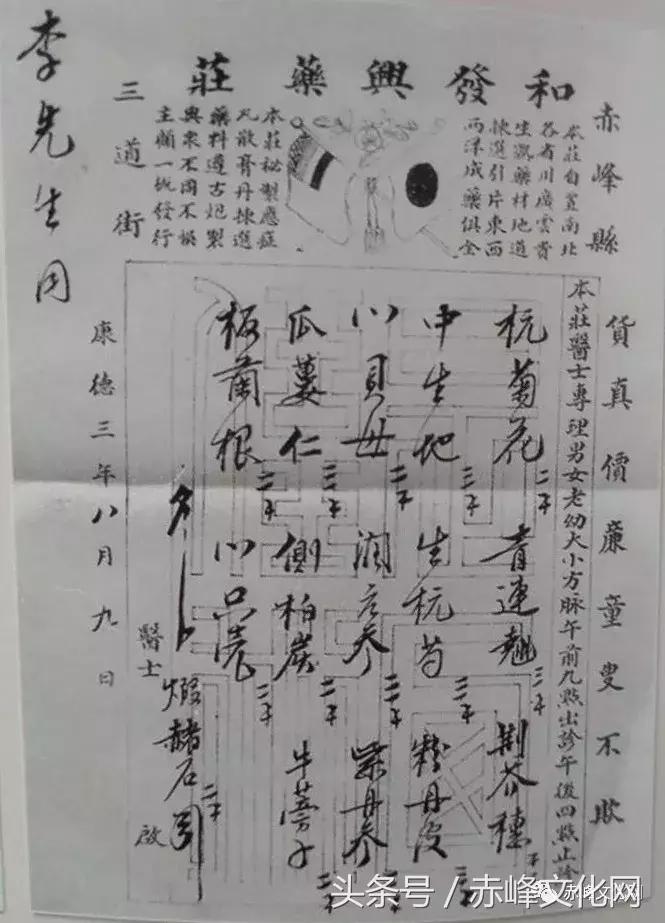 赤峰縣
和發興藥莊
三道街
本莊自置南北
各省川廣雲貴
生熟藥材地道
揀選引片東西
兩洋成藥俱全
本莊秘製應症
丸散膏丹揀選
藥料遵古炮製
與衆不同不悞
主顧一概發行
貨真價廉童叟不欺
本莊醫士專理男女老幼大小方脉午前九點出診午後四點止診
杭菊花 青連翹 荆芥穗
中生地 生杭芍 粉丹皮
川貝母 潤元参 紫丹参
瓜蔞仁 側柏炭 牛蒡子
板蘭根 川只壳
煅赭石 引
醫士 啟
康德三年八月九日
李先生用
头条号／赤峰文化网